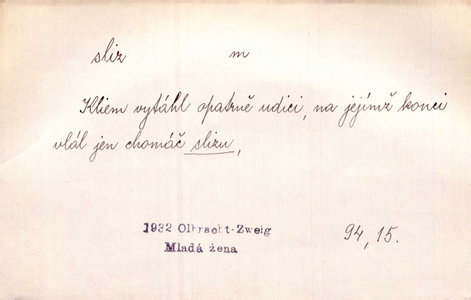 sliz m
Kliem vytáhl opatrně udici, na jejímž konci
vlál jen chomáč slizu,
1932 Olbracht-Zweig
Mladá žena
94, 15.